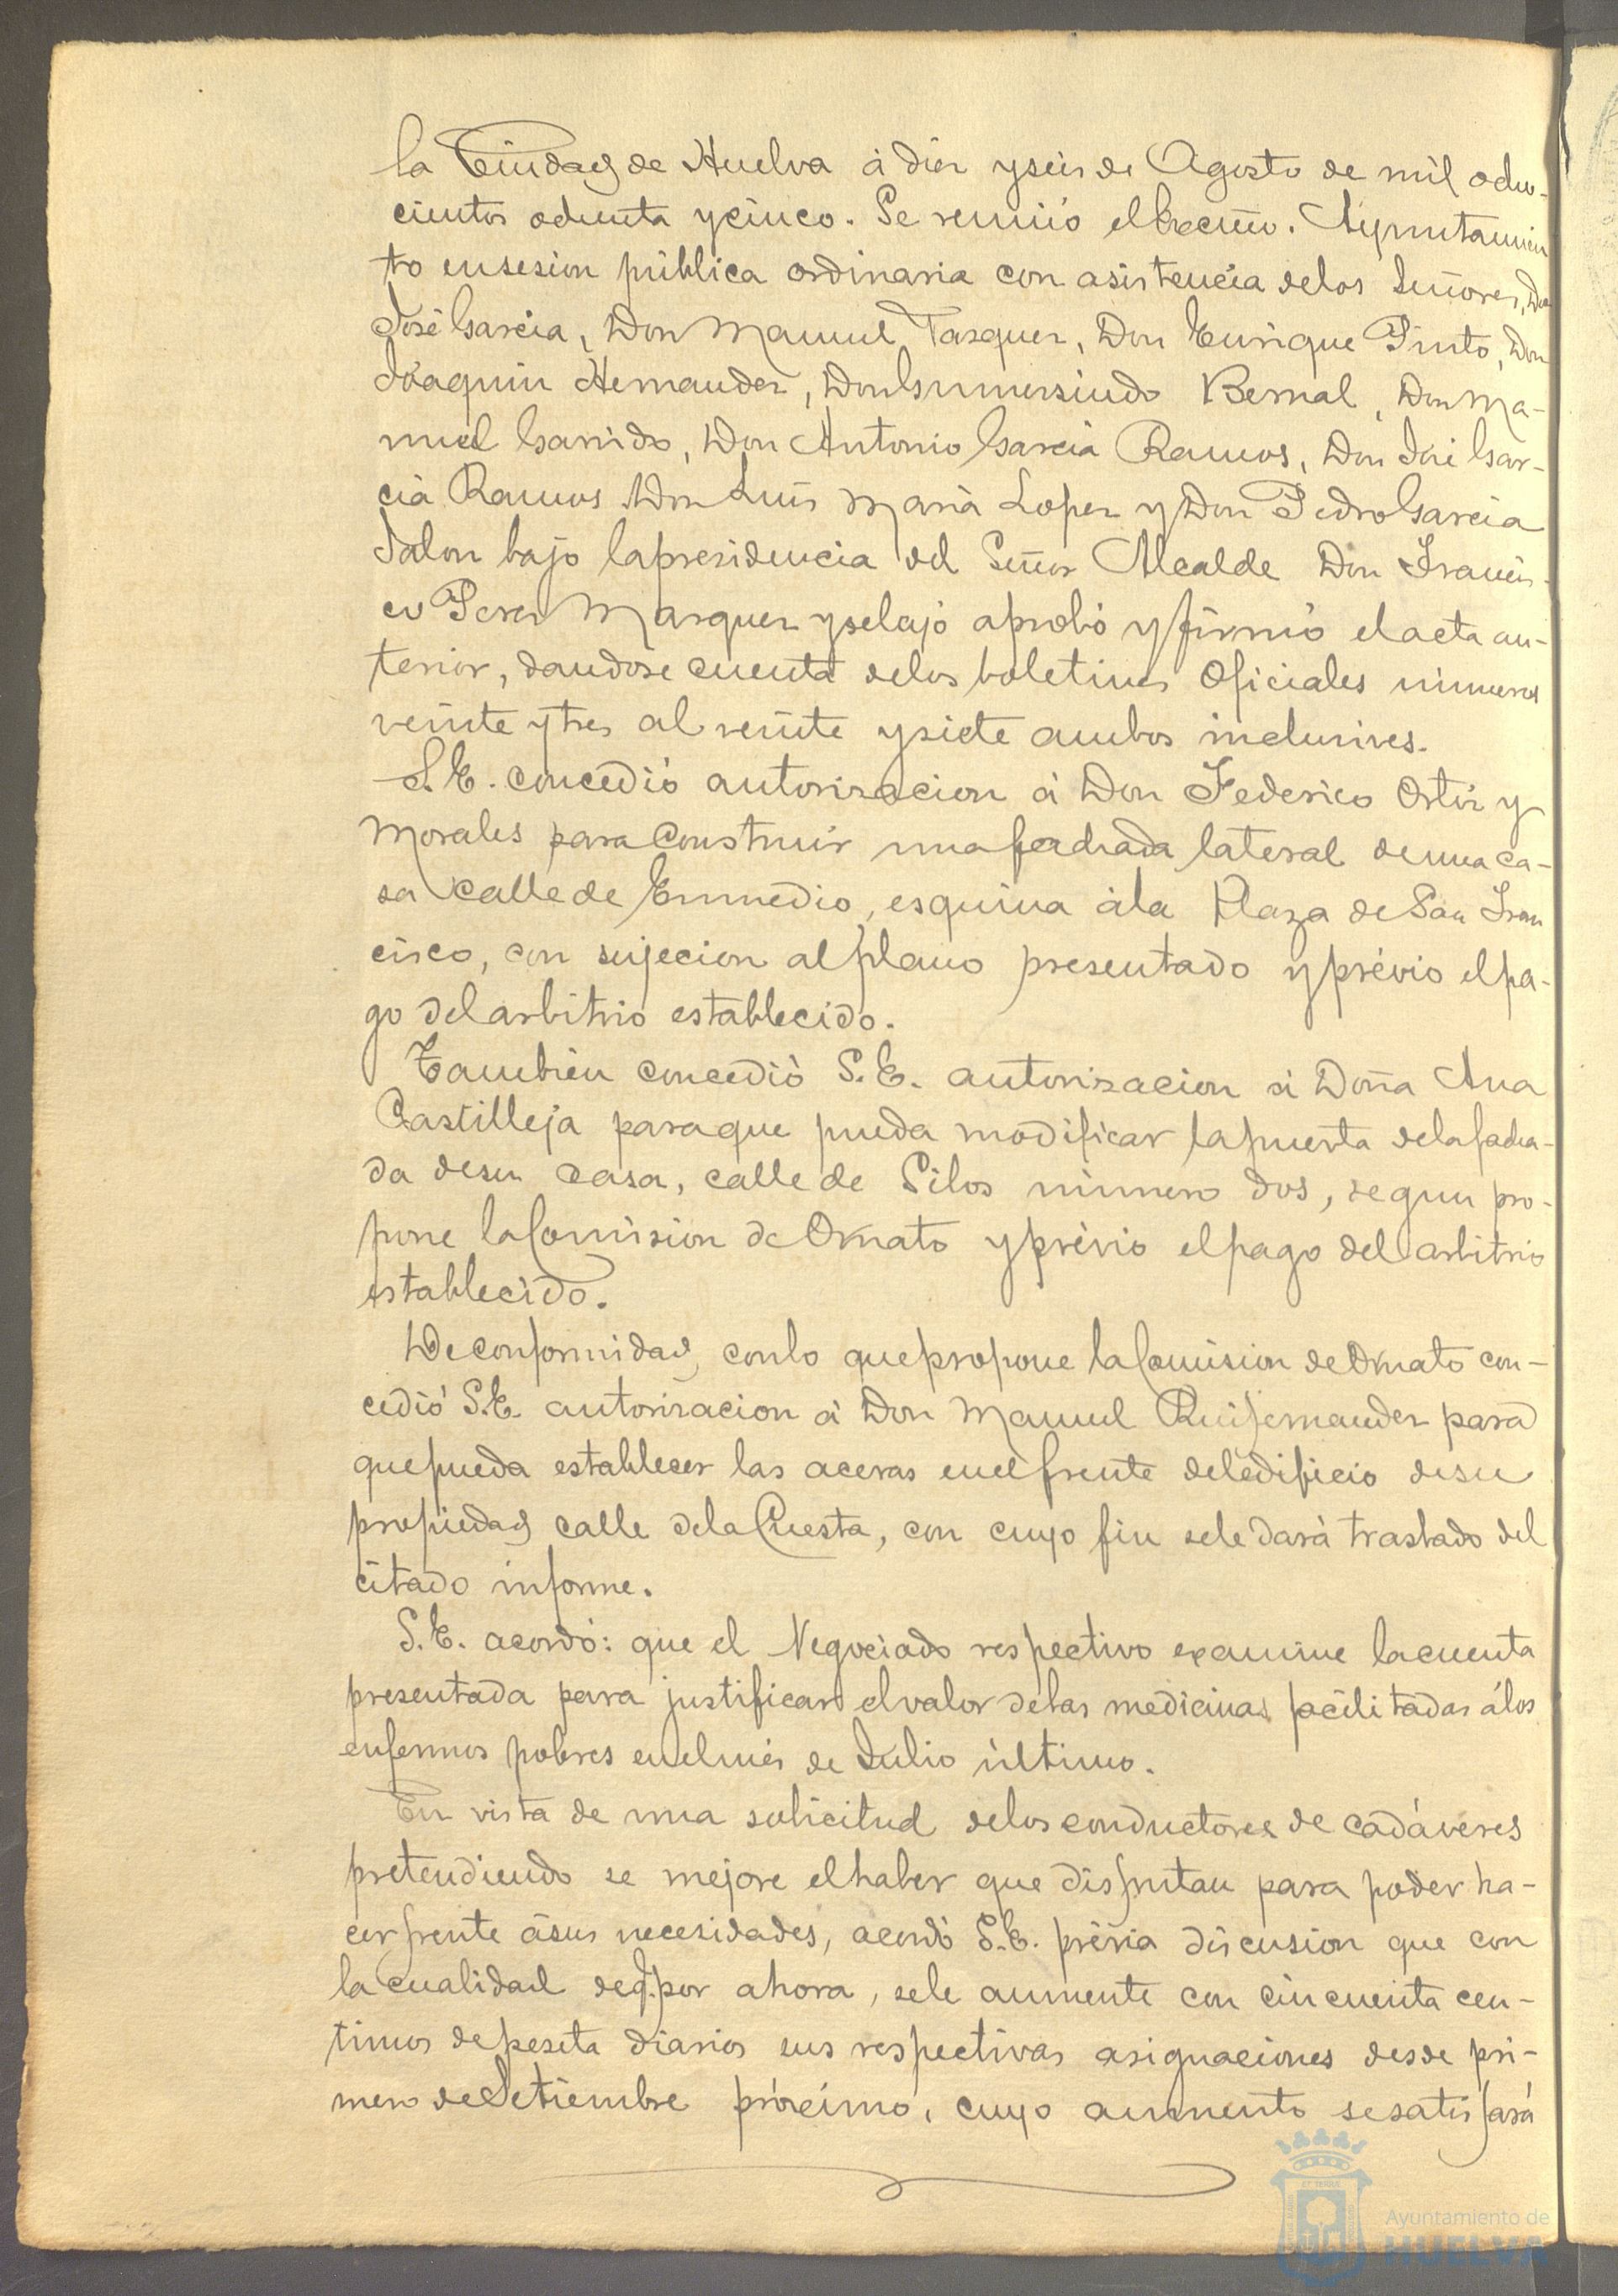 la Ciudad de Huelva á diez y seis de Agosto de mil ocho-
cientos ochenta y cinco. Se reunió el Excmo. Ayuntamien
to en sesion pública ordinaria con asistencia de los Señores, Don
José Garcia, Don Manuel Vazquez, Don Enrique Pinto, Don
Joaquin Hernandez, Don Gumersindo Bernal, Don Ma-
nuel Garrido, Don Antonio Garcia Ramos, Don José Gar-
cia Ramos Don Luis Maria Lopez y Don Pedro Garcia
Jalon bajo la presidencia del Señor Alcalde Don Francis-
co Perez Marquez y se lejó aprobó y firmó el acta an-
terior, dandose cuenta de los boletines Oficiales numeros
veinte y tres al veinte y siete ambos inclusives.
S.E. concedió autorizacion á Don Federico Ortiz y
Morales para construir una fachada lateral de una ca-
sa calle de Enmedio, esquina á la Plaza de San Fran
cisco, con sujecion al plano presentado y prévio el pa-
go del arbitrio establecido.
Tambien concedió S.E. autorizacion á Doña Ana
Castilleja para que pueda modificar la puerta de la facha-
da de su casa, calle de Silos número dos, segun pro-
pone la Comision de Ornato y prévio el pago del arbitrio
establecido.
De conformidad con lo que propone la Comision de Ornato con-
cedió S.E. autorizacion á Don Manuel Ruifernandez para
que pueda establecer las aceras en el frente del edificio de su
propiedad calle de la Cuesta, con cuyo fin se le dará traslado del
citado informe.
S.E. acordó: que el Negociado respectivo examine la cuenta
presentada para justificar el valor de las medicinas facilitadas á los
enfermos pobres en el mes de Julio último.
En vista de una solicitud de los conductores de cadáveres
pretendiendo se mejore el haber que disfrutan para poder ha-
cer frente á sus necesidades, acordó S.E. prévia discusion que con
la cualidad de q. por ahora, se le aumente con cincuenta cen-
timos de peseta diarios sus respectivas asignaciones desde pri-
mero de Setiembre próximo, cuyo aumento se satisfará
Ayuntamiento de
HUELVA